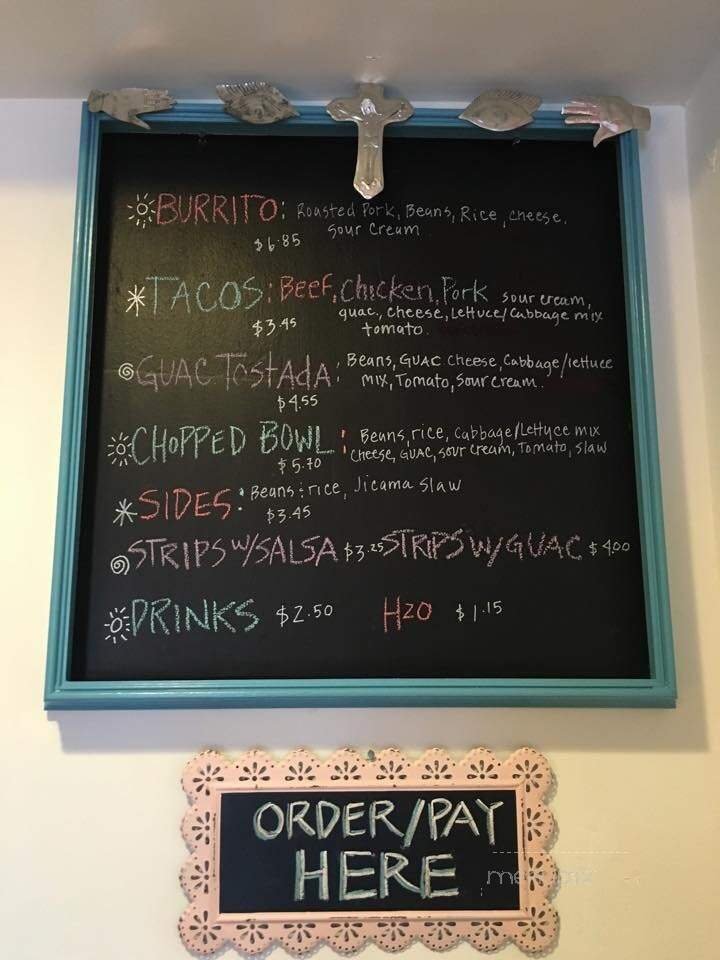 BURRITO: Roasted Pork, Beans, Rice, cheese,
$6.85 Sour Cream
TACOS: Beef, Chicken, Pork sour cream,
$3.45 guac, cheese, Lettuce/Cabbage mix
tomato.
GUAC TostAdA: Beans, GUAC Cheese, Cabbage/lettuce
mix, Tomato, Sour Cream.
$4.55
CHOPPED BOWL: Beans, rice, Cabbage/Lettuce mix
$5.70 Cheese, GUAC, sour cream, Tomato, Slaw
SIDES: Beans + rice, Jicama Slaw
$3.45
STRIPS W/SALSA $3.25 STRIPS W/GUAC $4.00
DRINKS $2.50 H2O $1.15
ORDER/PAY
HERE